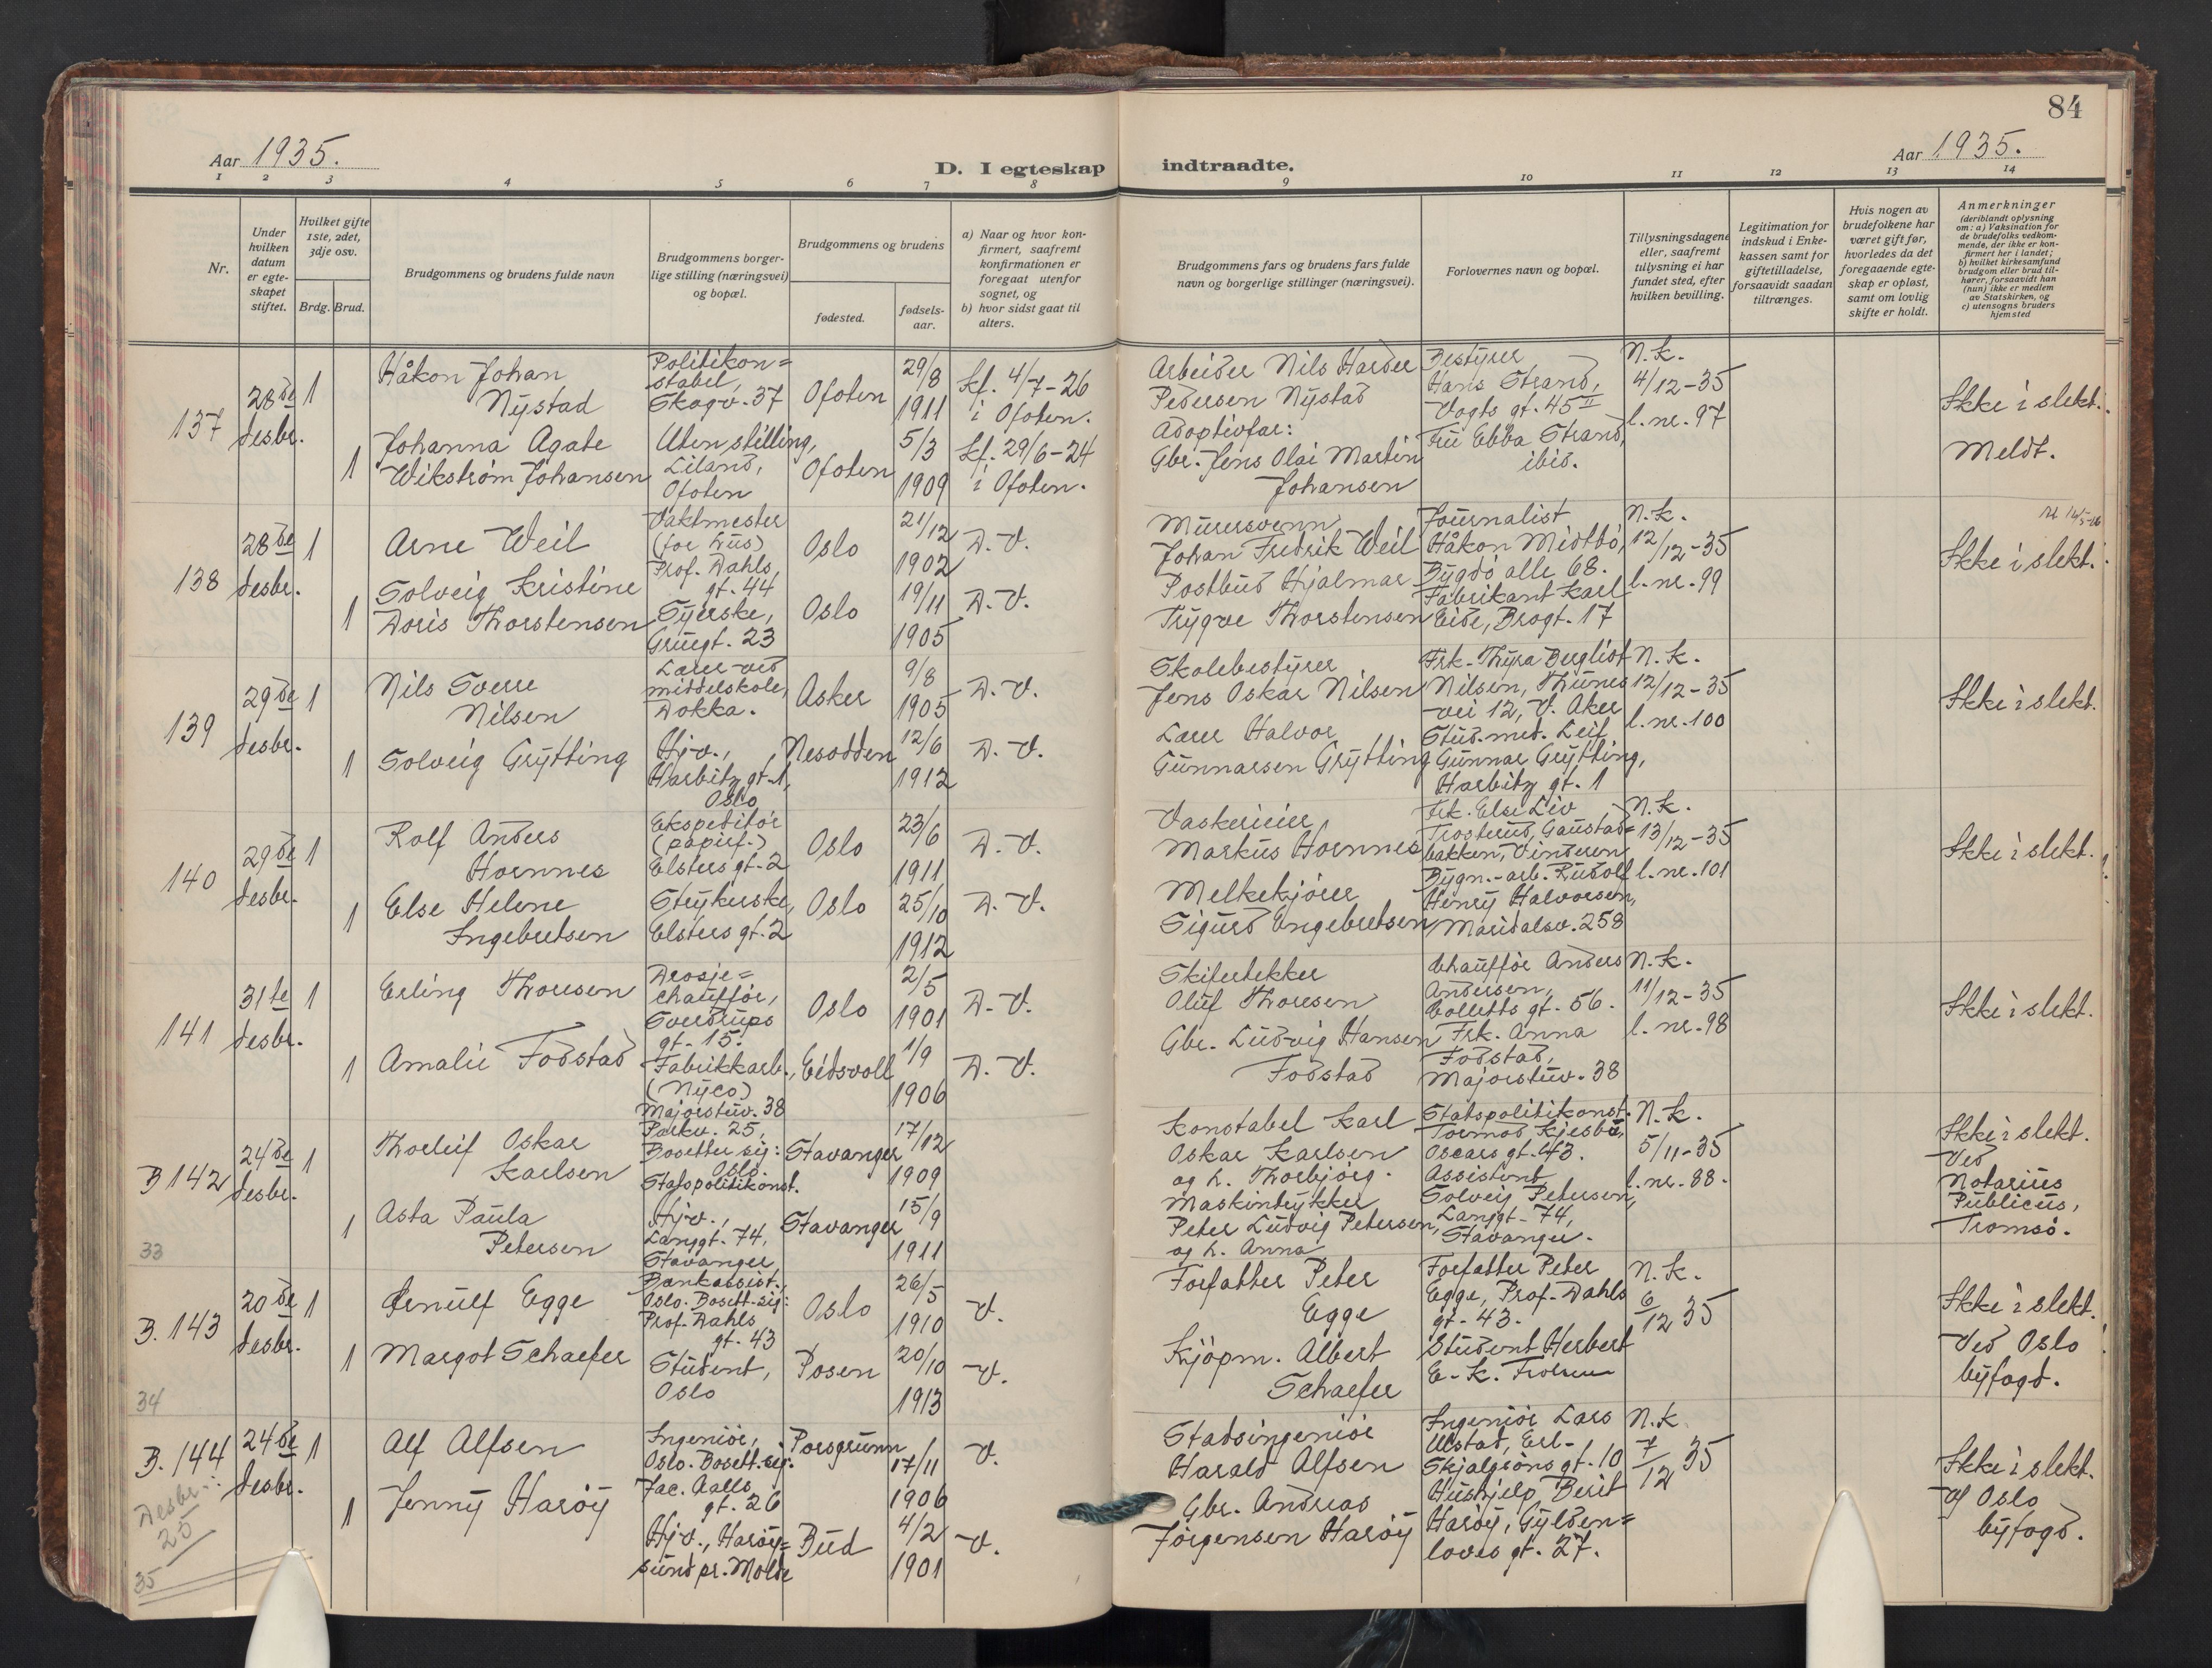 84
Aar 1935.
D. I egteskap indtraadte.
Aar 1935.
1 2 3 4 5 6 7 8 9 10 11 12 13 14
Nr.
Under hvilken datum er egteskapet stiftet.
Hvilket gifte 1ste, 2det, 3dje osv.
Brdg. Brud.
Brudgommens og brudens fulde navn
Brudgommens borgerlige stilling (næringsvei) og bopæl.
Brudgommens og brudens
fødested.
fødselsaar.
a) Naar og hvor konfirmert, saafremt konfirmationen er foregaat utenfor sognet, og
b) hvor sidst gaat til alters.
Brudgommens fars og brudens fars fulde navn og borgerlige stillinger (næringsvei).
Forlovernes navn og bopæl.
Tillysningsdagene eller, saafremt tillysning ei har fundet sted, efter hvilken bevilling.
Legitimation for indskud i Enkekassen samt for giftetilladelse, forsaavidt saadan tiltrænges.
Hvis nogen av brudefolkene har været gift før, hvorledes da det foregaaende egteskap er opløst, samt om lovlig skifte er holdt.
Anmerkninger
(deriblandt oplysning om: a) Vaksination for de brudefolks vedkommende, der ikke er konfirmert her i landet;
b) hvilket kirkesamfund brudgom eller brud tilhører, forsaavidt han (hun) ikke er medlem av Statskirken, og
c) utensogns bruders hjemsted
137
28de desbr.
1
Håkon Johan Nystad
Politikonstabel, Skogv. 37
Ofoten
29/8 1911
kf. 4/7-26 i Ofoten.
Arbeider Nils Harder Pedersen Nystad
Bestyrer Hans Strand, Vogts gt. 45 II
N.k. 4/12-35 l.nr. 97
Ikke i slekt.
1
Johanna Agate Wikstrøm Johansen
Uten stilling, Liland, Ofoten
Ofoten
5/3 1909
kf. 29/6-24 i Ofoten.
Adoptivfar: Gbr. Jens Olai Martin Johansen
Fru Ebba Strand, ibid.
Meldt.
138
28de desbr.
1
Arne Weil
Vaktmester (for hus) Prof. Dahls gt. 44
Oslo
21/12 1902
D.V.
Murersvenn Johan Fredrik Weil
Journalist Håkon Midtbø, Bygdø alle 68.
N.k. 12/12-35 l.nr. 99
Ikke i slekt.
1
Solveig Kristine Doris Thorstensen
Syerske, Gruegt. 23
Oslo
19/11 1905
D.V.
Postbud Hjalmar Trygve Thorstensen
Fabrikant Karl Eide, Brogt. 17
139
29de desbr.
1
Nils Sverre Nilsen
Lærer ved middelskole, Dokka.
Asker
9/8 1905
D.V.
Skolebestyrer Jens Oskar Nilsen
Frk. Thyra Bergliot Nilsen, Thunes vei 12, V. Aker
N.k. 12/12-35 l.nr. 100
Ikke i slekt.
1
Solveig Grytting
Hjv., Harbitz gt. 1, Oslo
Nesodden
12/6 1912
D.V.
Lærer Halvor Gunnarsen Grytting
Stud. med. Leif Gunnar Grytting, Harbitz gt. 1
140
29de desbr.
1
Rolf Anders Hornnes
Ekspeditør (papirf.) Elsters gt. 2
Oslo
23/6 1911
D.V.
Vaskerieier Markus Hornnes
Frk. Else Liv Trosterud, Gaustadbakken, Vinderen
N.k. 13/12-35 l.nr. 101
Ikke i slekt.
1
Else Helene Ingebretsen
Strykerske, Elsters gt. 2
Oslo
25/10 1912
D.V.
Melkekjører Sigurd Engebretsen
Bygn.-arb. Rudolf Henry Halvorsen, Maridalsv. 258
141
31te desbr.
1
Erling Thoresen
Drosjechauffør, Sverdrups gt. 15.
Oslo
2/5 1901
D.V.
Skifertekker Oluf Thoresen
Chauffør Anders Andersen, Colletts gt. 56.
N.k. 11/12-35 l.nr. 98
Ikke i slekt.
1
Amalie Fodstad
Fabrikkarb., (Nyco) Majorstuv. 38
Eidsvoll
1/9 1906
D.V.
Gbr. Ludvig Hansen Fodstad
Frk. Anna Fodstad, Majorstuv. 38
B 142
24de desbr.
1
Thorleif Oskar Karlsen
Parkv. 25, Bosetter sig: Oslo. Statspolitikonst.
Stavanger
17/12 1909
Konstabel Karl Oskar Karlsen og h. Thorbjørg.
Statspolitikonst. Tormod Kjesbu, Oscars gt. 43.
N.k. 5/11-35 l.nr. 88.
Ikke i slekt. Ved Notarius Publicus, Tromsø.
1
Asta Paula Petersen
Hjv., Langgt. 74, Stavanger
Stavanger
15/9 1911
Maskintrykker Peter Ludvig Petersen, og h. Anna
Assistent Solveig Petersen, Langgt. 74, Stavanger.
33
B. 143
20de desbr.
1
Ørnulf Egge
Bankassist., Oslo. Bosett. sig: Prof. Dahls gt. 43
Oslo
26/5 1910
V.
Forfatter Peter Egge
Forfatter Peter Egge, Prof. Dahls gt. 43.
N.k. 6/12 35
Ikke i slekt. Ved Oslo byfogd.
1
Margot Schaefer
Student, Oslo
Posen
20/10 1913
V.
Kjøpm. Albert Schaefer
Student Herbert E. K.
34
B. 144
24de desbr.
1
Alf Alfsen
Ingeniør, Oslo. Bosett. sig: Jac. Aalls gt. 26
Porsgrunn
17/11 1906
V.
Stadsingeniør Harald Alfsen
Ingeniør Lars Ulstad, Erl. Skjalgsøns gt. 10
N.k. 7/12 35
Ikke i slekt. Av Oslo byfogd.
1
Jenny Harøy
Hjv., Harøysund pr. Molde
Bud
4/2 1901
V.
Gbr. Andreas Jørgensen Harøy
Hushjelp Berit Harøy, Gyldenløves gt. 27.
Desbr.: 25
35